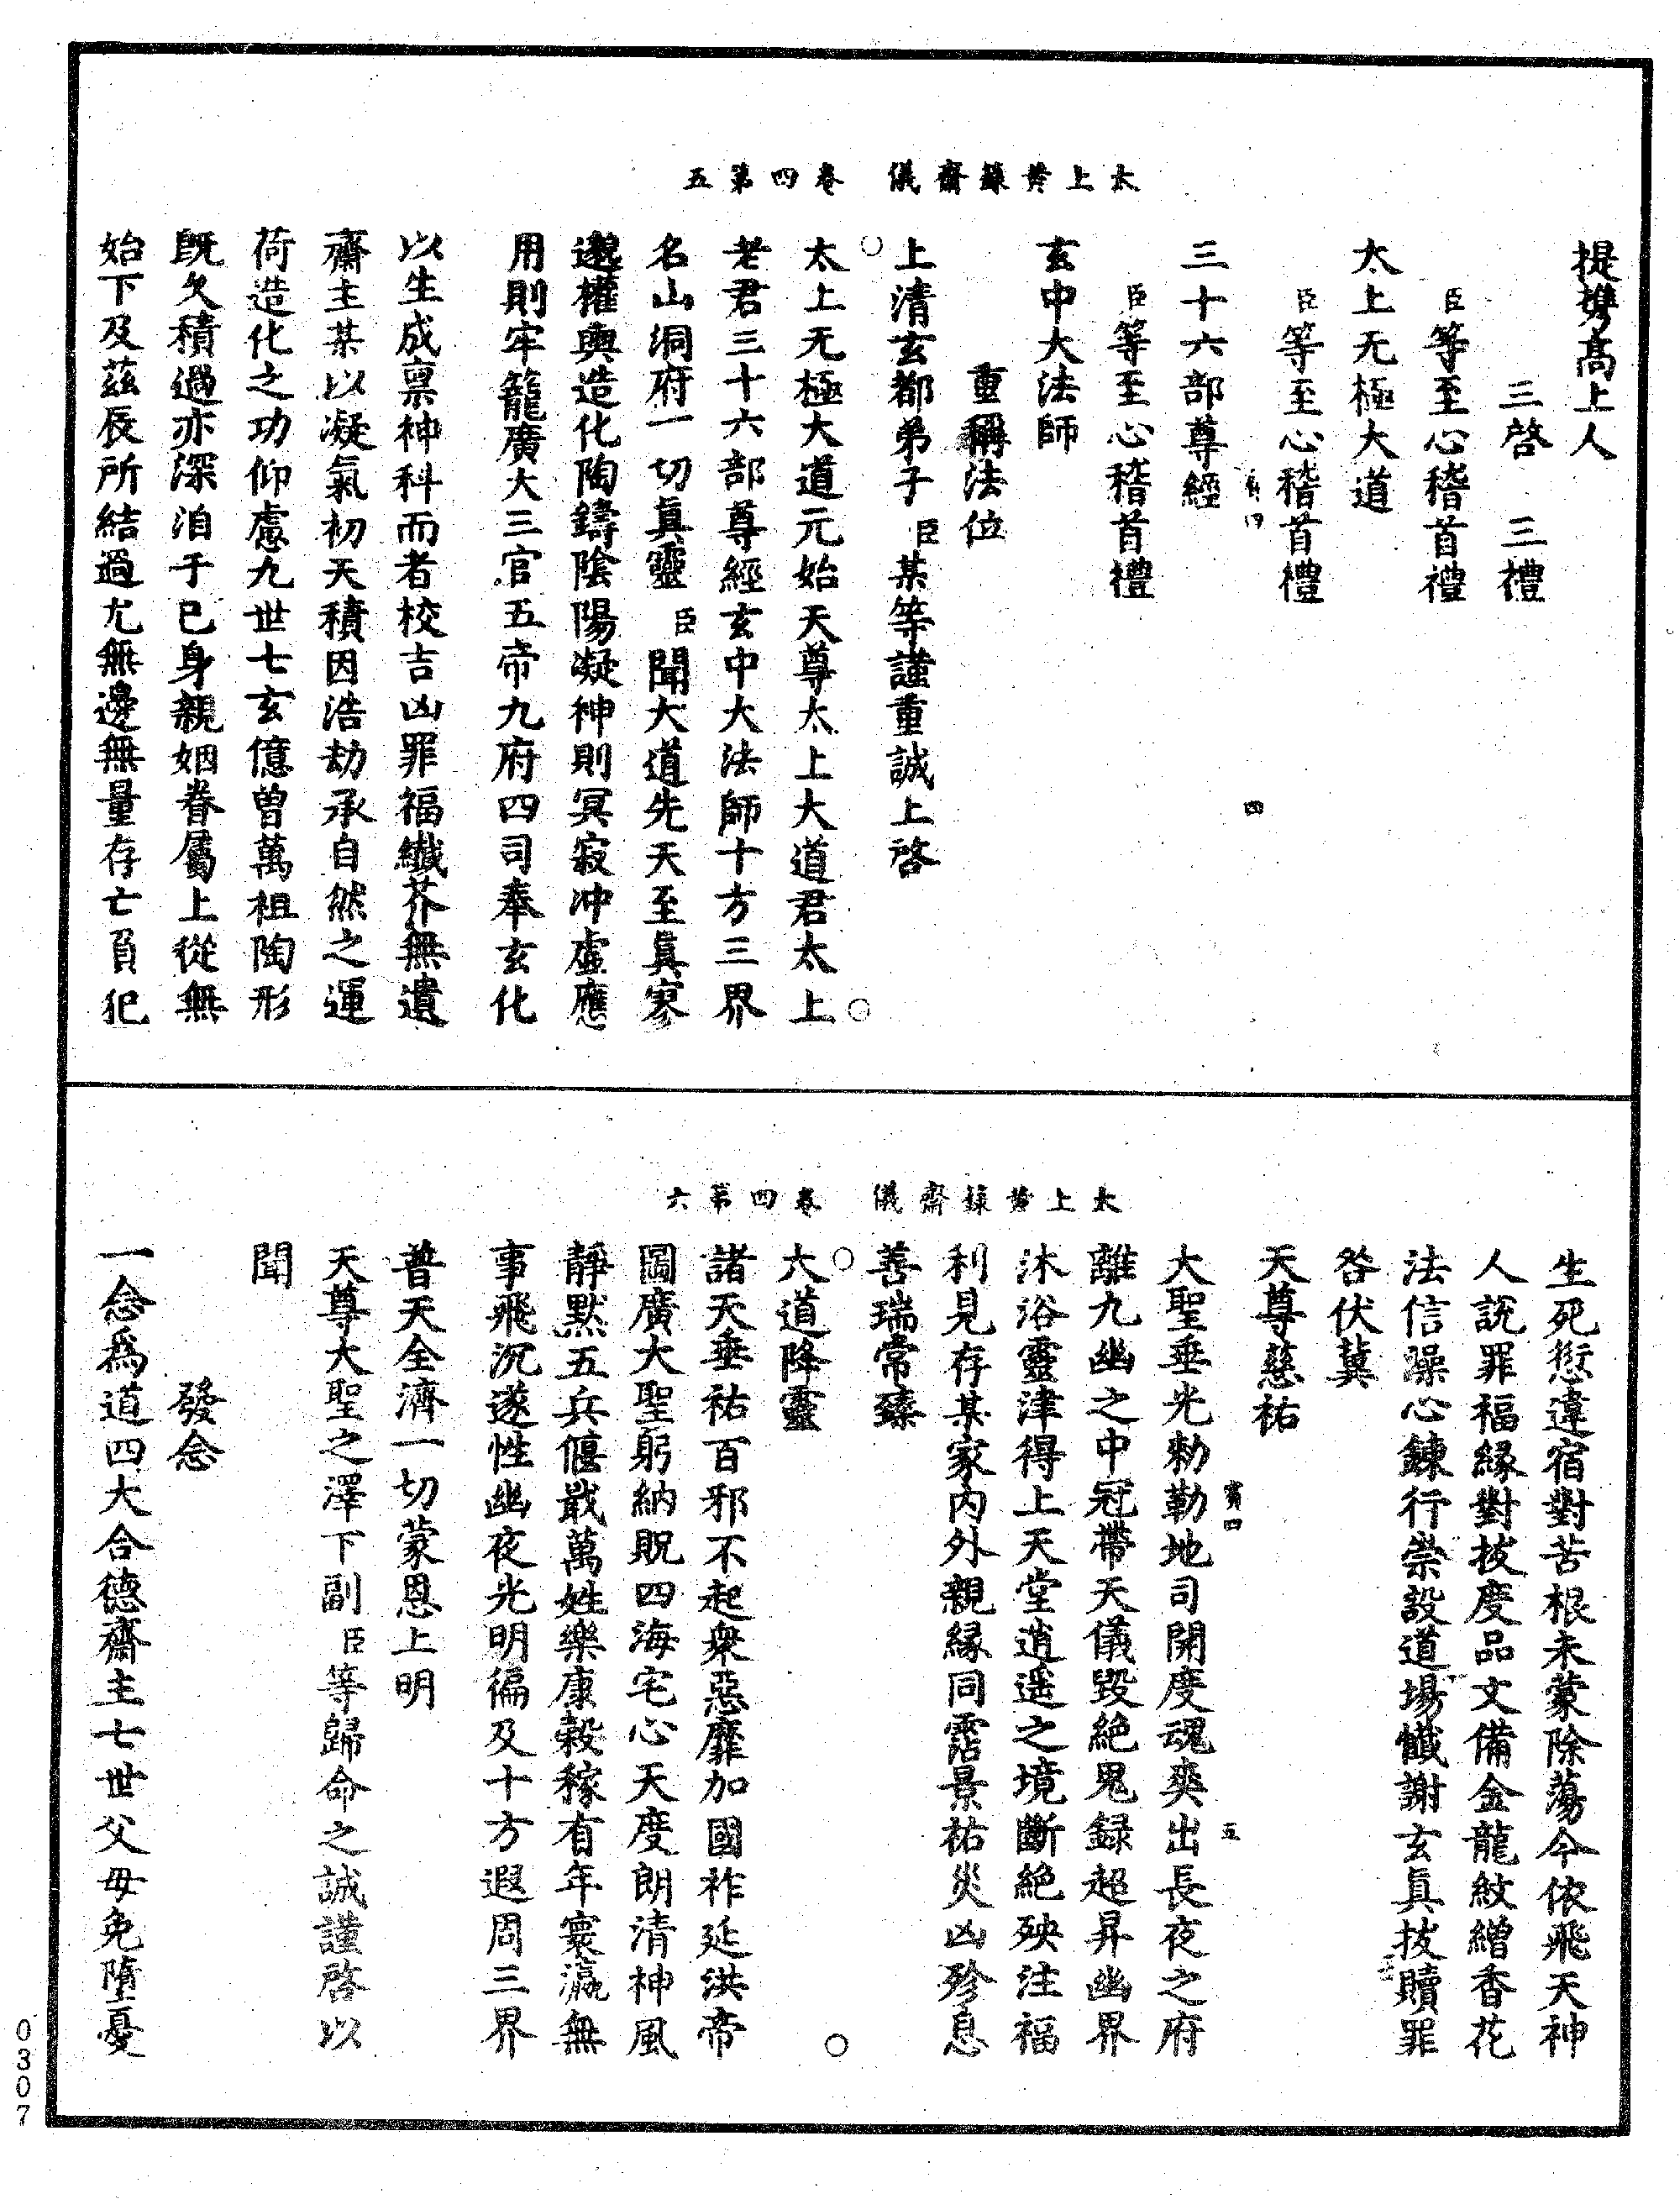 太上黃籙齋儀　卷四第五
提㩦髙上人
三啓　三禮
臣等至心稽首禮
太上无極大道
臣等至心稽首禮
四
三十六部尊經
臣等至心稽首禮
玄中大法師
重稱法位
上清玄都弟子臣某等謹重誠上啓
太上无極大道元始天尊太上大道君太上
老君三十六部尊經玄中大法師十方三界
名山洞府一切真靈臣聞大道先天至真寥
邈權輿造化陶鑄陰陽凝神則冥寂沖虛應
用則牢籠廣大三官五帝九府四司奉玄化
以生成稟神科而者校吉凶罪福纖芥無遺
齋主某以凝氣初天積因浩劫承自然之運
荷造化之功仰慮九世七玄億曾萬祖陶形
旣久積過亦深洎于已身親姻眷屬上從無
始下及茲辰所結過尤無邊無量存亡負犯
太上黃籙齋儀　卷四第六
生死愆違宿對苦根未蒙除蕩今依飛天神
人說罪福緣對拔度品文備金龍紋繒香花
法信澡心鍊行崇設道場懺謝玄真拔贖罪
咎伏冀
天尊慈祐
五
大聖垂光勑勒地司開度魂爽出長夜之府
離九幽之中冠帶天儀毀絕鬼録超昇幽界
沐浴靈津得上天堂逍遥之境斷絕殃注福
利見存某家内外親緣同霑景祐災凶殄息
善瑞常臻
大道降靈
諸天垂祐百邪不起衆惡靡加國祚延洪帝
圖廣大聖躬納貺四海宅心天度朗清神風
靜默五兵偃戢萬姓樂康榖稼有年寰瀛無
事飛沉遂性幽夜光明徧及十方遐周三界
普天全濟一切蒙恩上明
天尊大聖之澤下副臣等歸命之誠謹啓以
聞
發念
一念爲道四大合德齋主七世父母免墮憂
0307